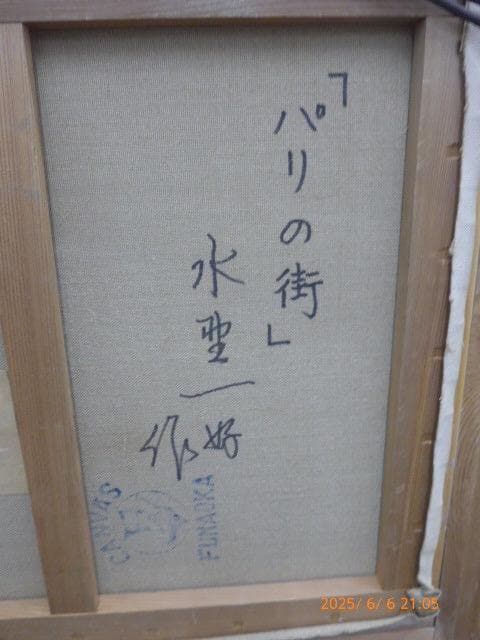 「パリの街」
水野一好
作
CANVAS
FUNAOKA
2025/ 6/ 6 21:05